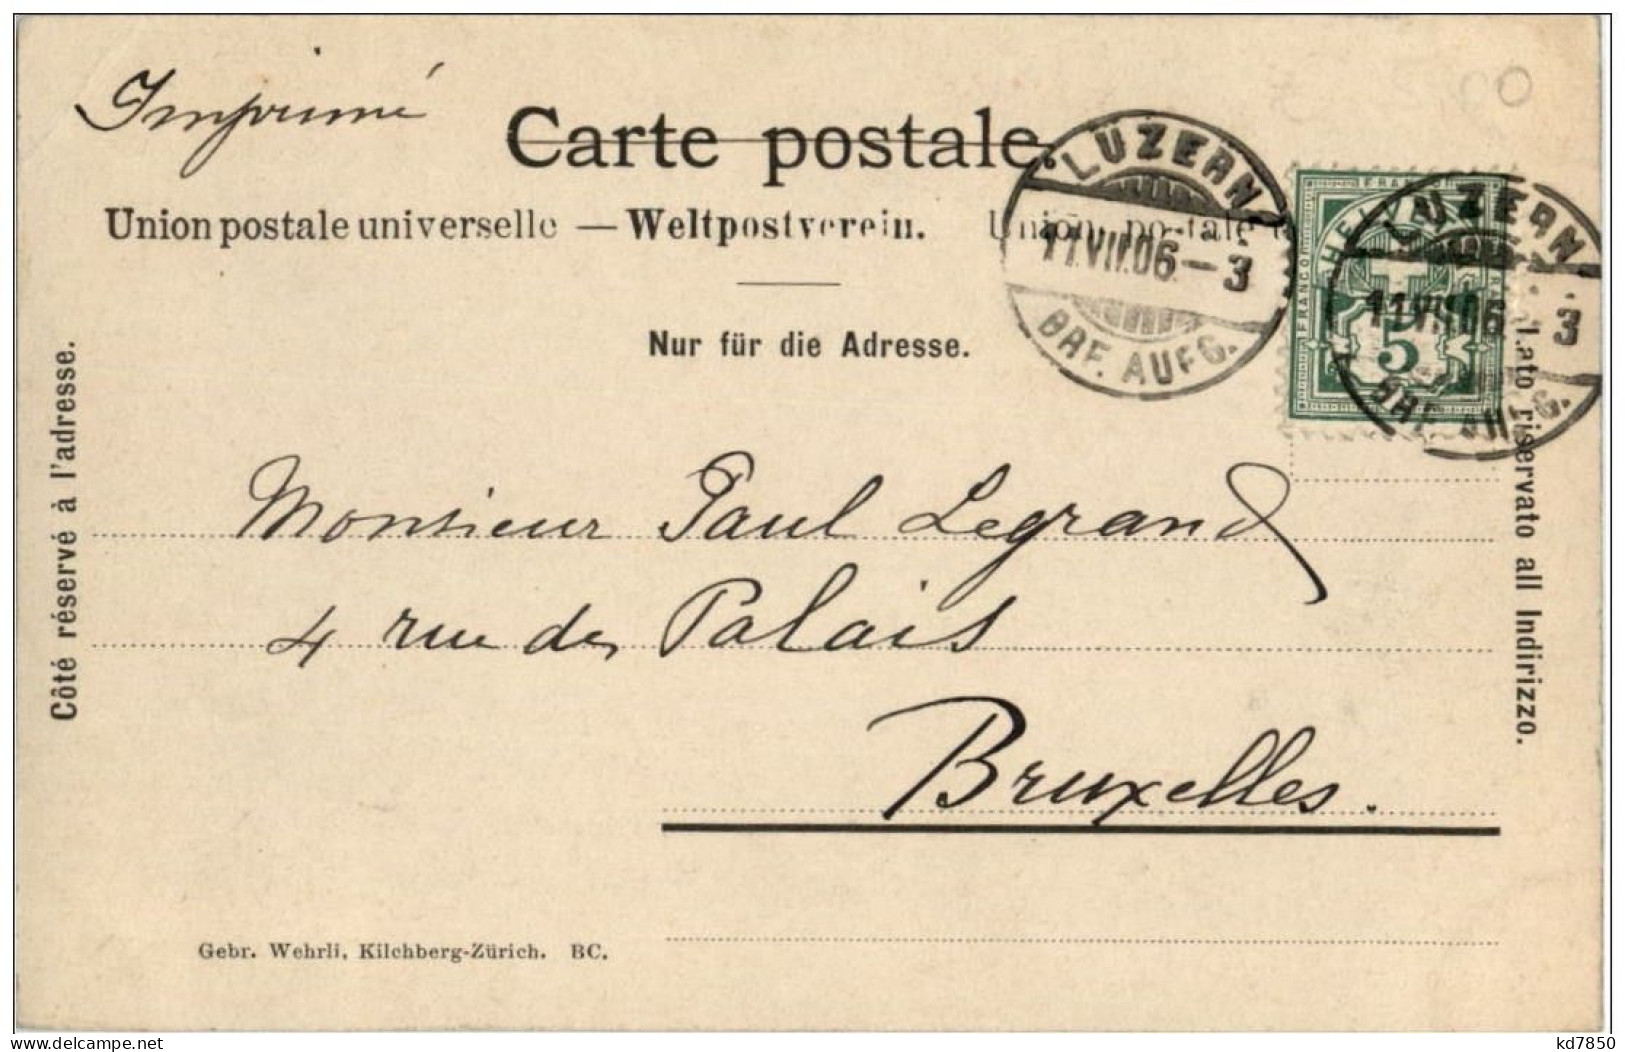 Imprimé
Carte postale.
Union postale universelle — Weltpostverein. Union postale
Nur für die Adresse.
LUZERN
11.VII.06–3
BRF. AUFG.
LUZERN
11.VII.06–3
BRF. AUFG.
FRANCO
HELVETIA
FRANCO
5
Côté réservé à l'adresse.
Lato riservato all Indirizzo.
Monsieur Paul Legrand
4 rue des Palais
Bruxelles.
Gebr. Wehrli, Kilchberg-Zürich. BC.
delcampe.net
kd7850